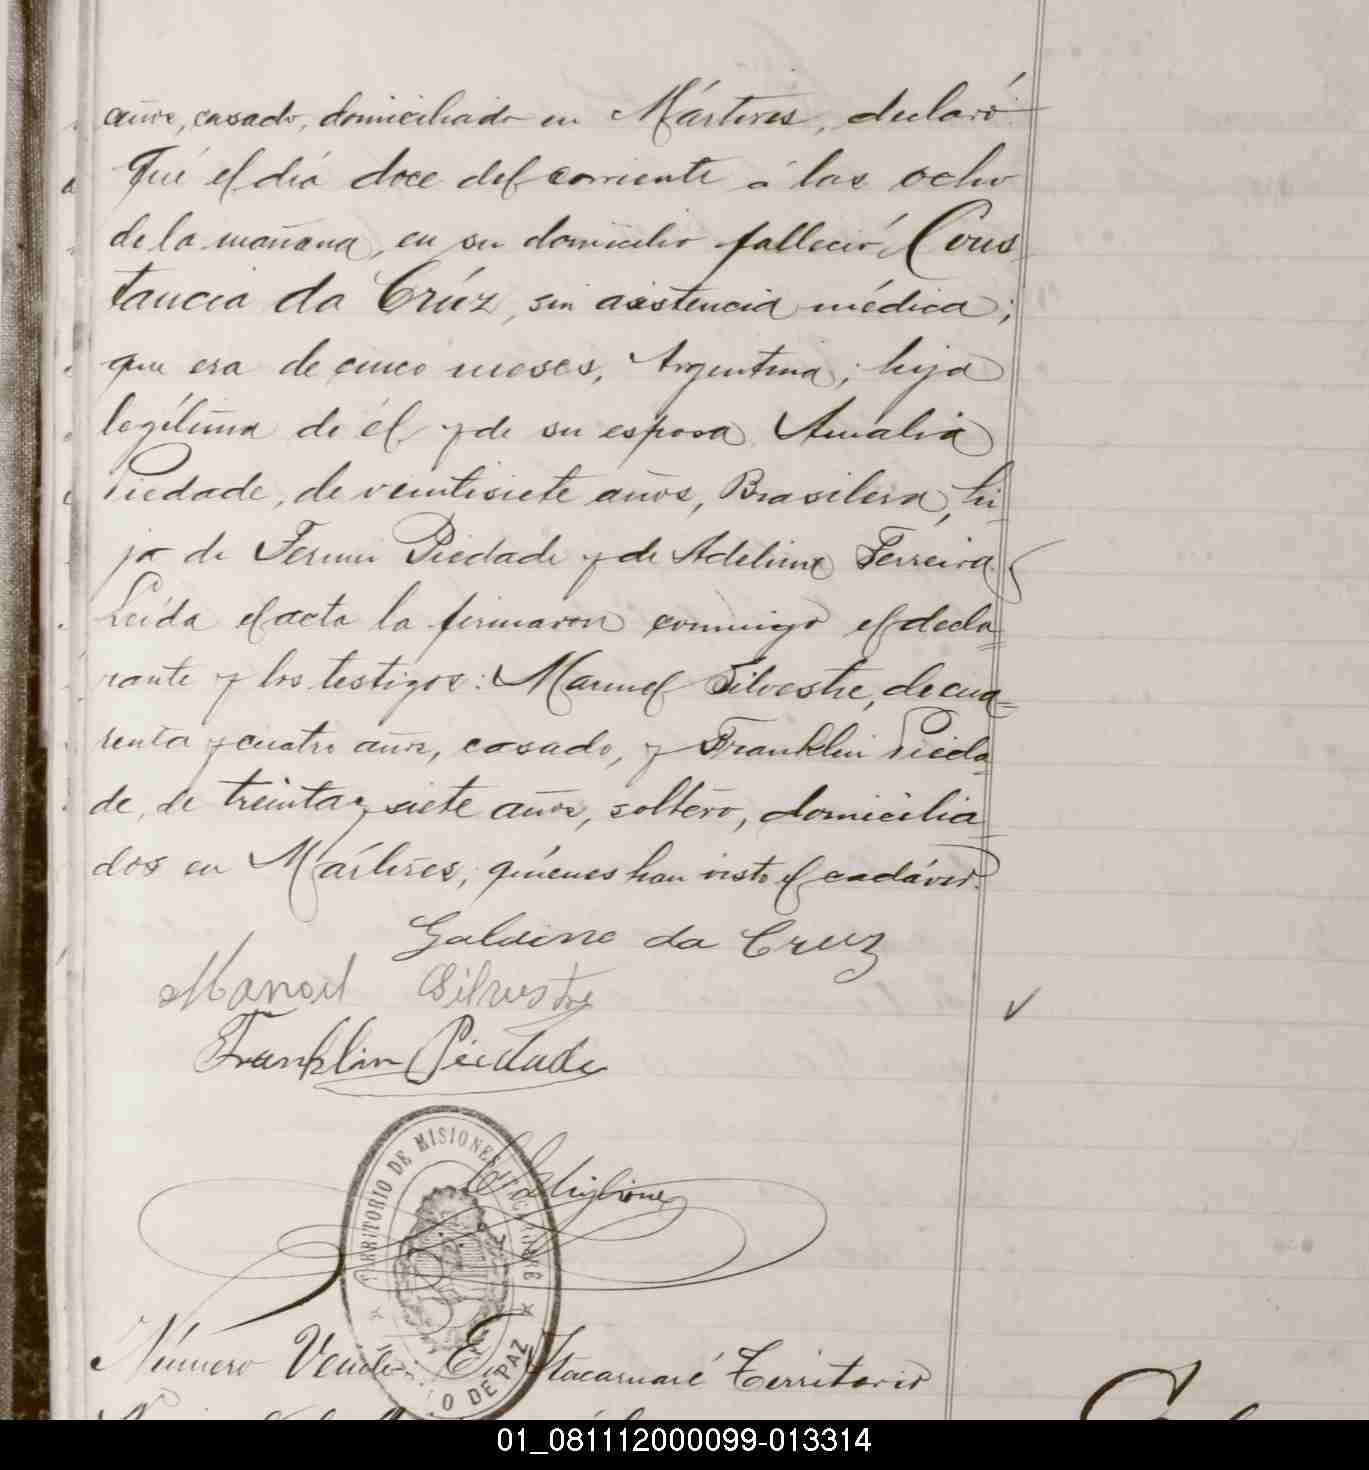 años, casado, domiciliado en Mártires, declaró:
Qué el día doce del corriente á las ocho
de la mañana, en su domicilio falleció, Cons
tancia da Crúz, sin asistencia médica;
que era de cinco meses, Argentina; hija
legítima de él y de su esposa Amalia
Piedade, de veintisiete años, Brasilera, hi-
ja de Fermin Piedade y de Adelina Ferreira.
Leída el acta la firmaron conmigo el decla=
rante y los testigos: Manuel Silvestre, de cua=
renta y cuatro años, casado, y Franklin Pieda=
de, de treinta y siete años, soltero, domicilia=
dos en Mártires, quienes han visto el cadáver.
Galdino da Cruz
Manoel Silvestre
Franklin Piedade
TERRITORIO DE MISIONES
DE PAZ
Número Itacaruaré Territorio
01_081112000099-013314